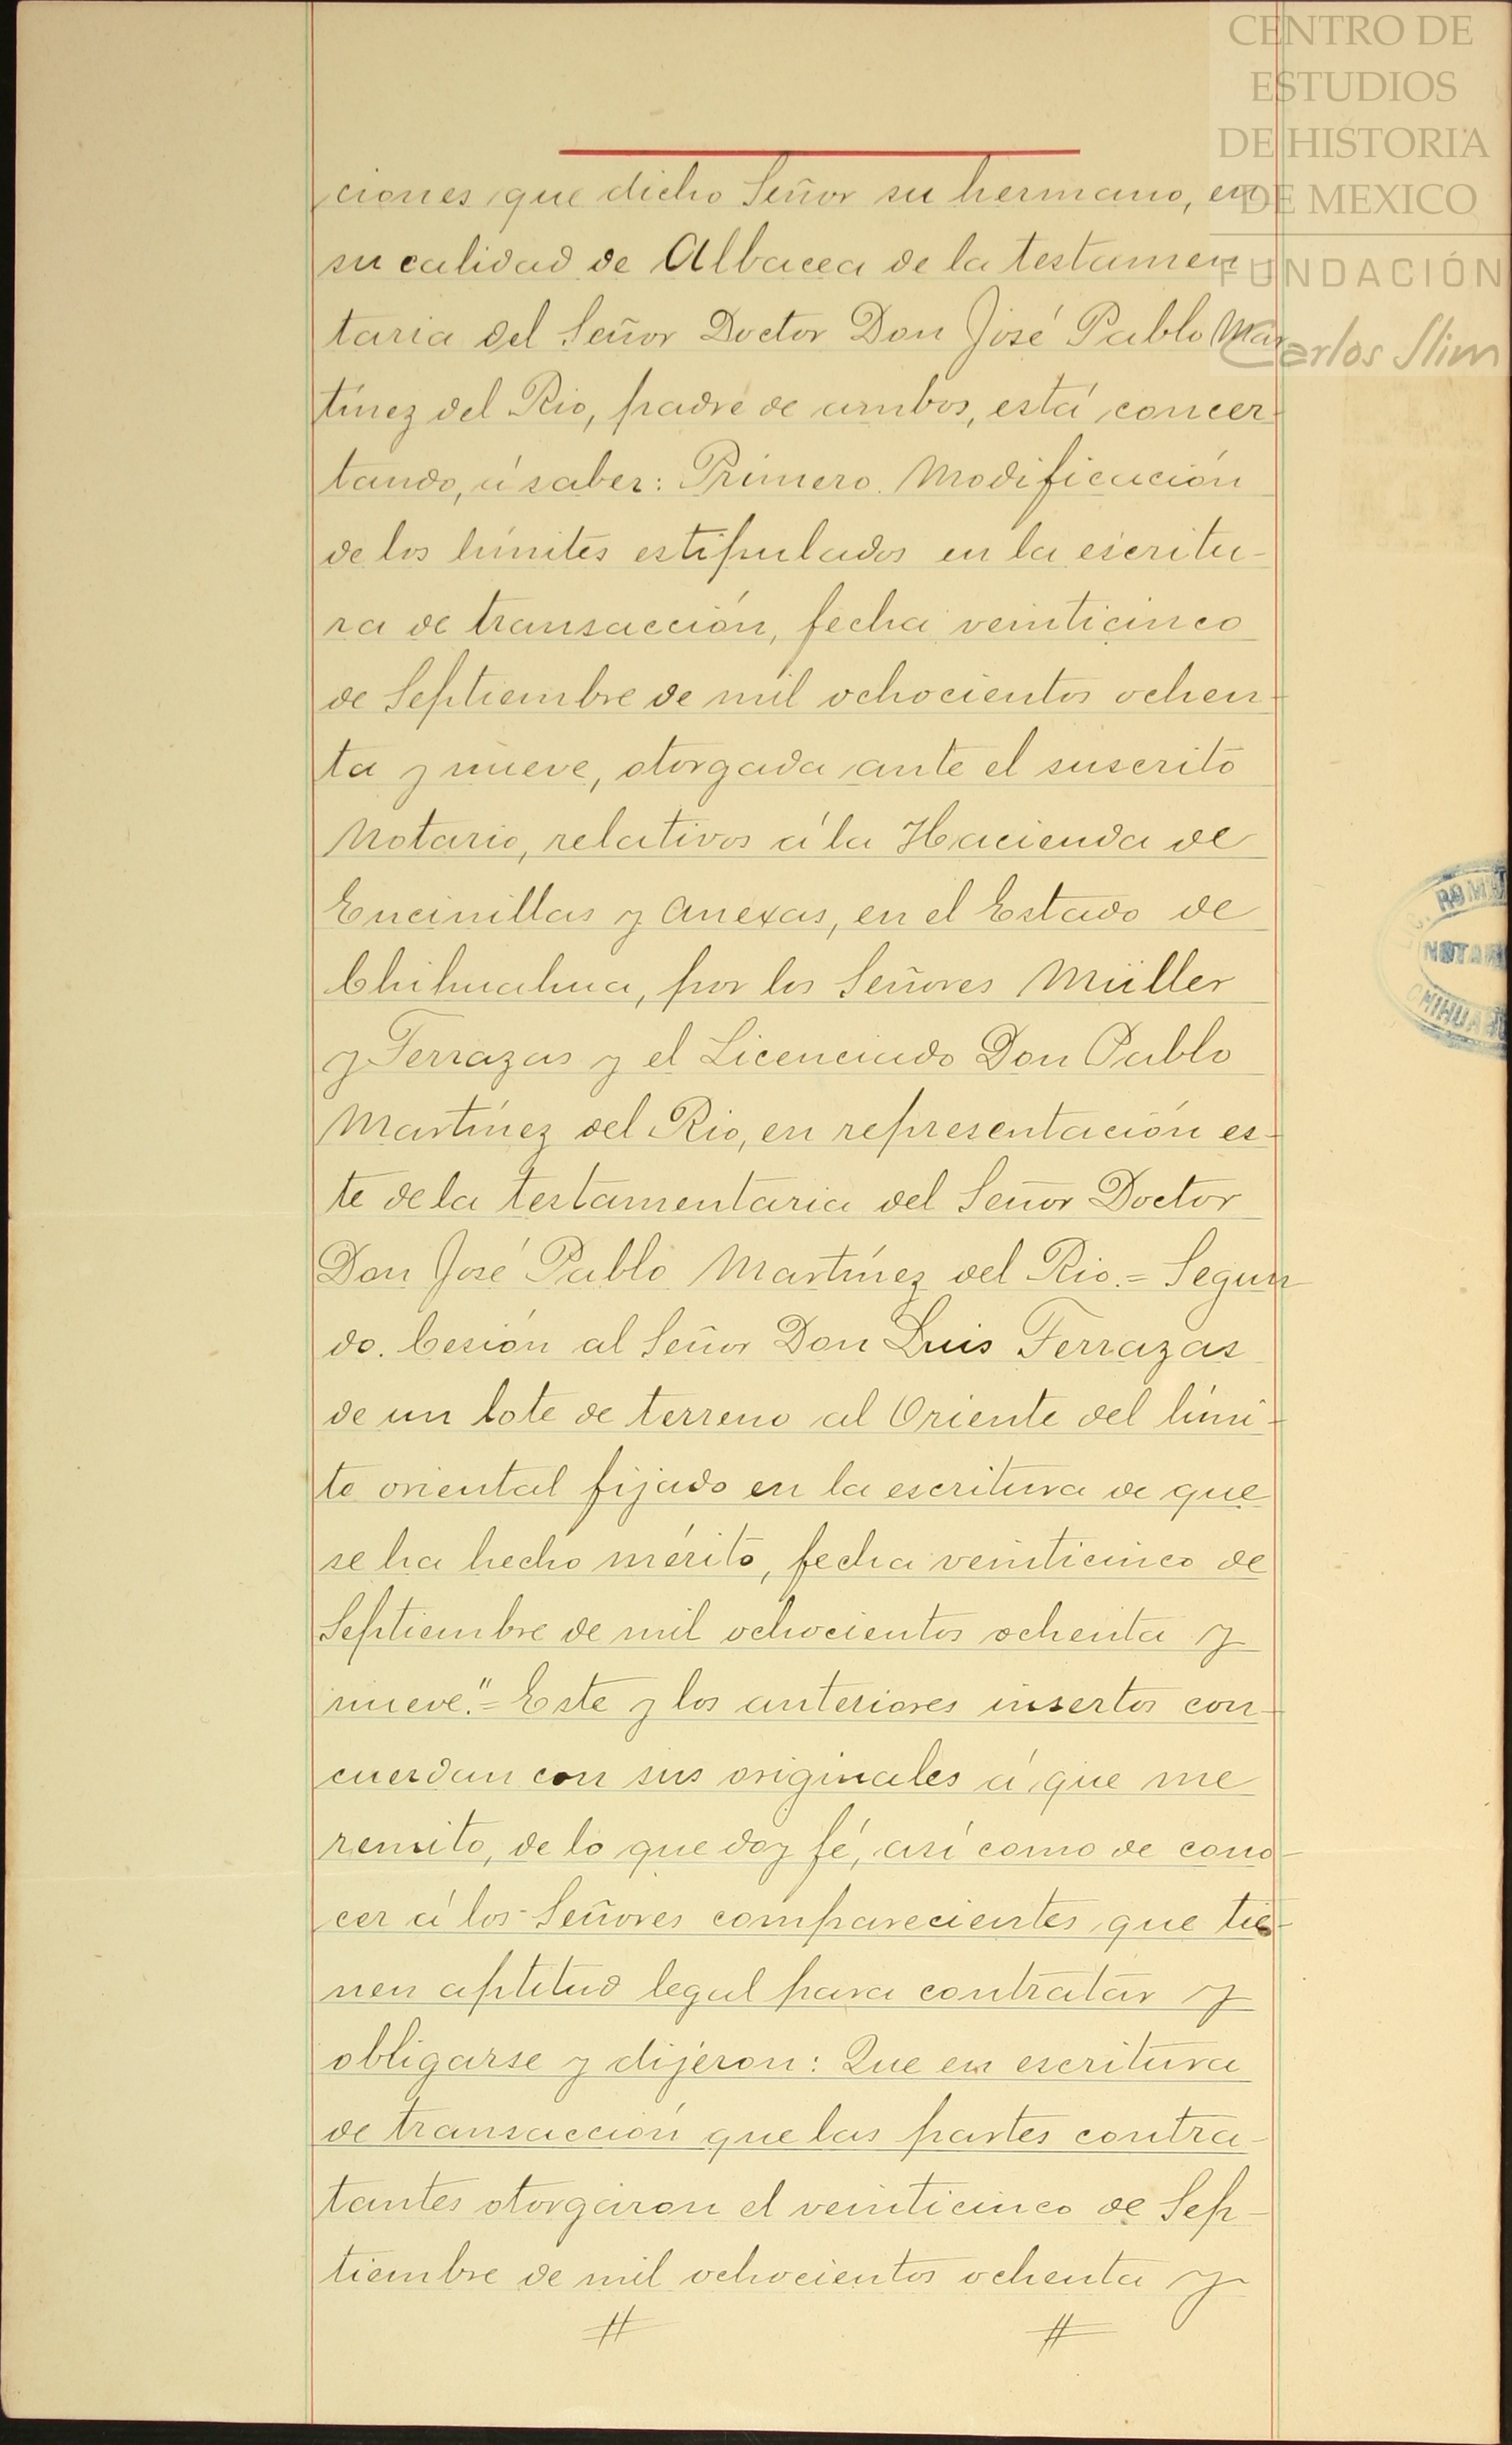 CENTRO DE
ESTUDIOS
DE HISTORIA
DE MEXICO
FUNDACIÓN
Carlos Slim
ciones que dicho Señor su hermano, en
su calidad de Albacea de la testamen
taria del Señor Doctor Don José Pablo Mar
tínez del Rio, padre de ambos, está concer-
tando, á saber: Primero. Modificación
de los límites estipulados en la escritu-
ra de transacción, fecha veinticinco
de Septiembre de mil ochocientos ochen-
ta y nueve, otorgada ante el suscrito
Notario, relativos á la Hacienda de
Encinillas y anexas, en el Estado de
Chihuahua, por los Señores Müller
y Terrazas y el Licenciado Don Pablo
Martínez del Rio, en representación es-
te de la testamentaria del Señor Doctor
Don José Pablo Martínez del Rio.= Segun
do. Cesión al Señor Don Luis Terrazas
de un lote de terreno al Oriente del lími-
te oriental fijado en la escritura de que
se ha hecho mérito, fecha veinticinco de
Septiembre de mil ochocientos ochenta y
nueve."= Este y los anteriores insertos con-
cuerdan con sus originales á que me
remito, de lo que doy fé, así como de cono-
cer á los Señores comparecientes que tie-
nen aptitud legal para contratar y
obligarse y dijeron: Que en escritura
de transacción que las partes contra-
tantes otorgaron el veinticinco de Sep-
tiembre de mil ochocientos ochenta y
# #